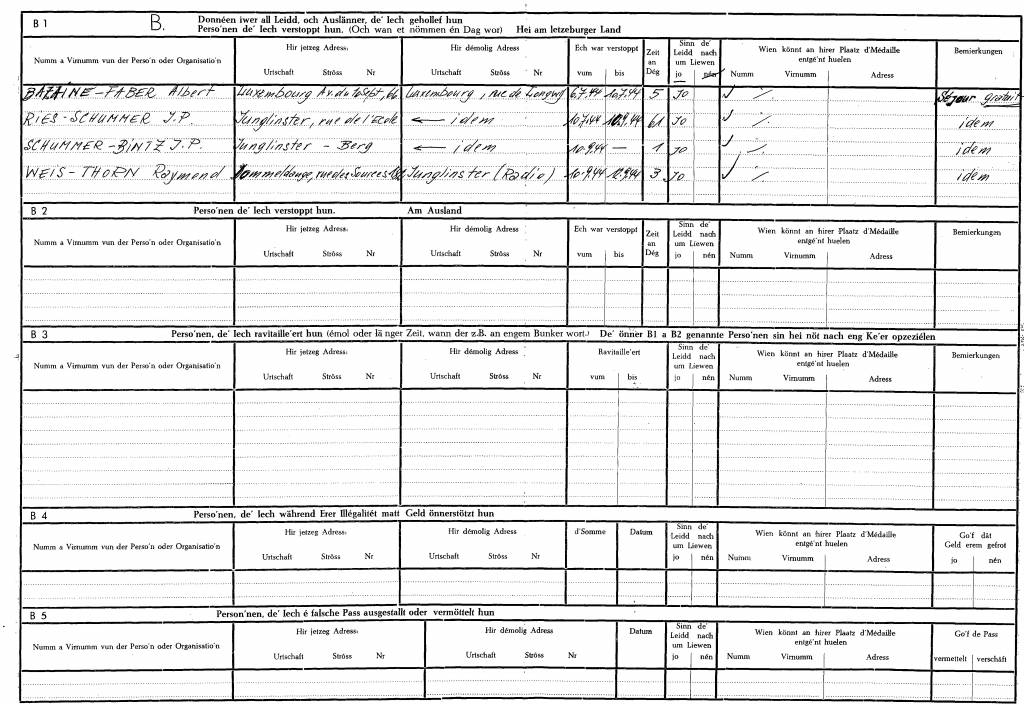 B 1 B. Donnéen iwer all Leidd, och Auslänner, de' Iech gehollef hun
Perso'nen de' Iech verstoppt hun. (Och wan et nömmen én Dag wor) Hei am letzeburger Land
Numm a Virnumm vun der Perso'n oder Organisatio'n
Hir jetzeg Adress: Urtschaft Ströss Nr
Hir démolig Adress Urtschaft Ströss Nr
Ech war verstoppt vum bis
Zeit an Dég
Sinn de' Leidd nach um Liewen jo nén
Wien könnt an hirer Plaatz d'Médaille entgé'nt huelen
Numm Virnumm Adress
Bemierkungen
BAZAINE-FABER Albert Luxembourg Av. du 10 Sept, 66 Luxembourg, rue de Longwy 6.7.44 10.7.44 5 Jo Séjour gratuit
RIES-SCHUMMER J.P. Junglinster, rue de l'Ecole ← idem 10.7.44 10.9.44 61 Jo idem
SCHUMMER-BINTZ J.P. Junglinster - Berg ← idem 10.9.44 — 1 Jo idem
WEIS-THORN Raymond Dommeldange, rue des Sources Junglinster (Radio) 10.9.44 12.9.44 3 Jo idem
B 2 Perso'nen de' Iech verstoppt hun. Am Ausland
Numm a Virnumm vun der Perso'n oder Organisatio'n
Hir jetzeg Adress: Urtschaft Ströss Nr
Hir démolig Adress Urtschaft Ströss Nr
Ech war verstoppt vum bis
Zeit an Dég
Sinn de' Leidd nach um Liewen jo nén
Wien könnt an hirer Plaatz d'Médaille entgé'nt huelen
Numm Virnumm Adress
Bemierkungen
B 3 Perso'nen, de' Iech ravitaille'ert hun (émol oder länger Zeit, wann der z.B. an engem Bunker wort.) De' önner B1 a B2 genannte Perso'nen sin hei nöt nach eng Ke'er opzeziélen
Numm a Virnumm vun der Perso'n oder Organisatio'n
Hir jetzeg Adress: Urtschaft Ströss Nr
Hir démolig Adress Urtschaft Ströss Nr
Ravitaille'ert vum bis
Sinn de' Leidd nach um Liewen jo nén
Wien könnt an hirer Plaatz d'Médaille entgé'nt huelen
Numm Virnumm Adress
Bemierkungen
B 4 Perso'nen, de' Iech während Erer Illégalitét matt Geld önnerstötzt hun
Numm a Virnumm vun der Perso'n oder Organisatio'n
Hir jetzeg Adress: Urtschaft Ströss Nr
Hir démolig Adress Urtschaft Ströss Nr
d'Somme
Datum
Sinn de' Leidd nach um Liewen jo nén
Wien könnt an hirer Plaatz d'Médaille entgé'nt huelen
Numm Virnumm Adress
Go'f dát Geld erem gefrot jo nén
B 5 Person'nen, de' Iech é falsche Pass ausgestallt oder vermöttelt hun
Numm a Virnumm vun der Perso'n oder Organisatio'n
Hir jetzeg Adress: Urtschaft Ströss Nr
Hir démolig Adress Urtschaft Ströss Nr
Datum
Sinn de' Leidd nach um Liewen jo nén
Wien könnt an hirer Plaatz d'Médaille entgé'nt huelen
Numm Virnumm Adress
Go'f de Pass vermettelt verschâft